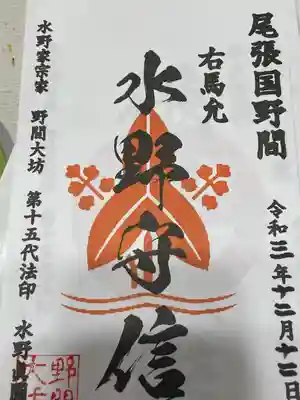 尾張国野間
右馬允
水野守信
令和三年十二月十二日
水野家宗家 野間大坊 第十五代法印 水野真
野間
大